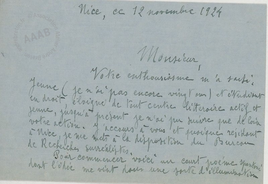 Nice, ce 12 novembre 1924
AAAB
Monsieur,
Votre enthousiasme m'a saisi.
Jeune (je n'ai pas encore vingt ans) et étudiant
en droit, éloigné de tout centre littéraire actif et
jeune, jusqu'à présent je n'ai pu suivre que de loin
votre action. J'accours à vous et quoique résidant
à Nice je me mets à la disposition du Bureau
de Recherches surréalistes.
Pour commencer voici un court poème
dont l'idée me vint dans une sorte d'